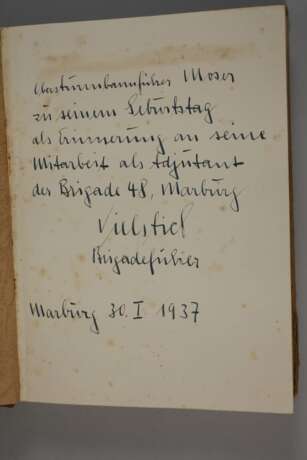 Obersturmbannführer Moser
zu seinem Geburtstag
als Erinnerung an seine
Mitarbeit als Adjutant
der Brigade 48, Marburg
Vielstich
Brigadeführer
Marburg 30. I 1937